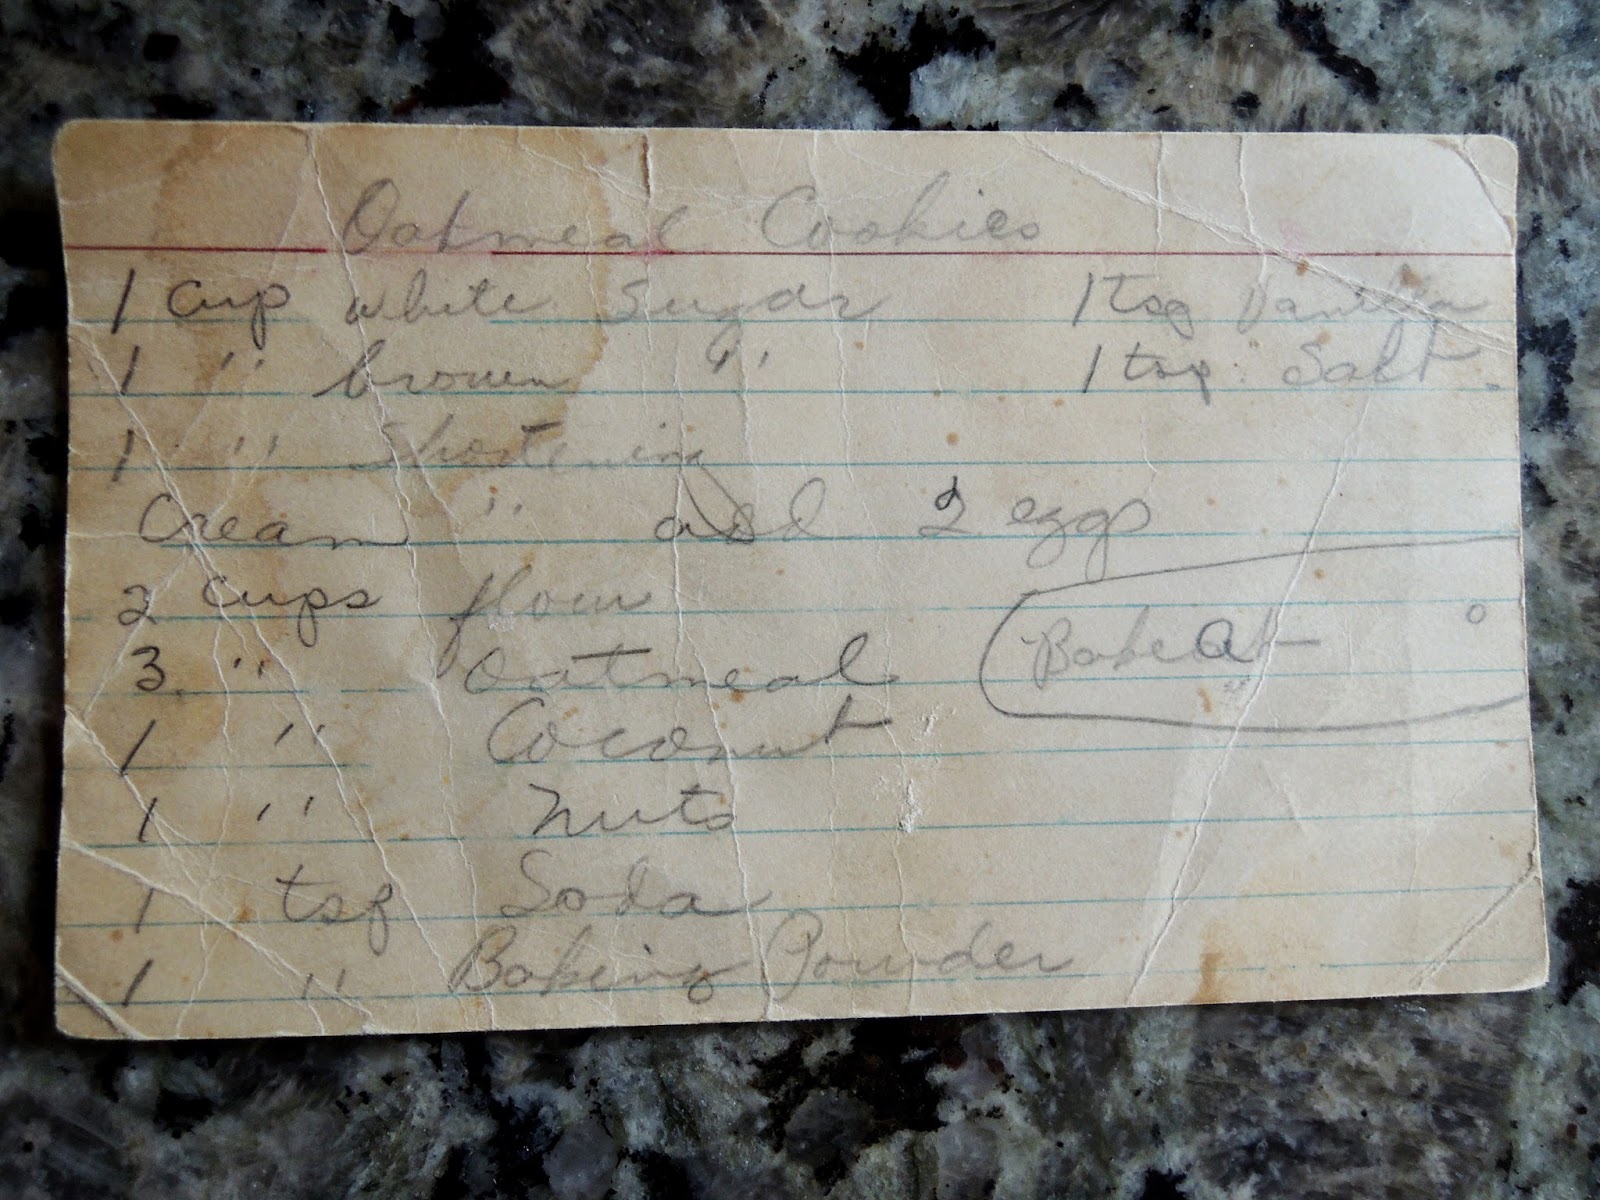 Oatmeal Cookies
1 cup white sugar 1 tsp Vanilla
1 " brown " 1 tsp. Salt.
1 " Shortening
Cream " add 2 eggs
2 cups flour
3 " Oatmeal
Bake at °
1 " Coconut
1 " nuts
1 tsp Soda
1 " Baking Powder